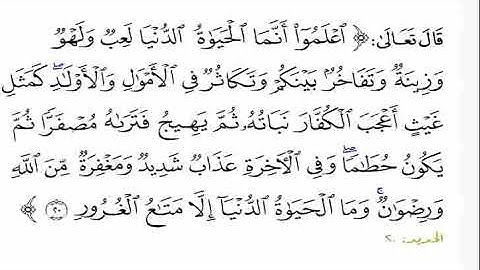 قَالَ تَعَالَىٰ: ﴿ ٱعۡلَمُوٓاْ أَنَّمَا ٱلۡحَيَوٰةُ ٱلدُّنۡيَا لَعِبٞ وَلَهۡوٞ
وَزِينَةٞ وَتَفَاخُرُۢ بَيۡنَكُمۡ وَتَكَاثُرٞ فِي ٱلۡأَمۡوَٰلِ وَٱلۡأَوۡلَٰدِۖ كَمَثَلِ
غَيۡثٍ أَعۡجَبَ ٱلۡكُفَّارَ نَبَاتُهُۥ ثُمَّ يَهِيجُ فَتَرَىٰهُ مُصۡفَرّٗا ثُمَّ
يَكُونُ حُطَٰمٗاۖ وَفِي ٱلۡأٓخِرَةِ عَذَابٞ شَدِيدٞ وَمَغۡفِرَةٞ مِّنَ ٱللَّهِ
وَرِضۡوَٰنٞۚ وَمَا ٱلۡحَيَوٰةُ ٱلدُّنۡيَآ إِلَّا مَتَٰعُ ٱلۡغُرُورِ ٢٠ ﴾
الحديد: ٢٠